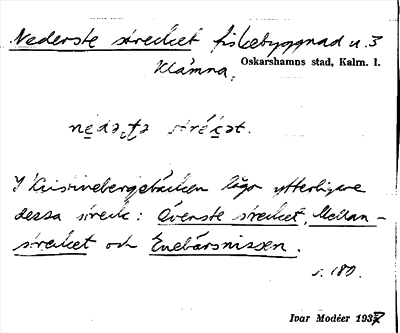 Nederste strecket fiskebyggnad u. 3
Klämna,
Oskarshamns stad, Kalm. l.
strékət.
I Kristinebergsbäcken låga ytterligare
dessa streck: Överste strecket, Mellan-
strecket och Enebärsnissen.
s. 180.
Ivar Modéer 1937